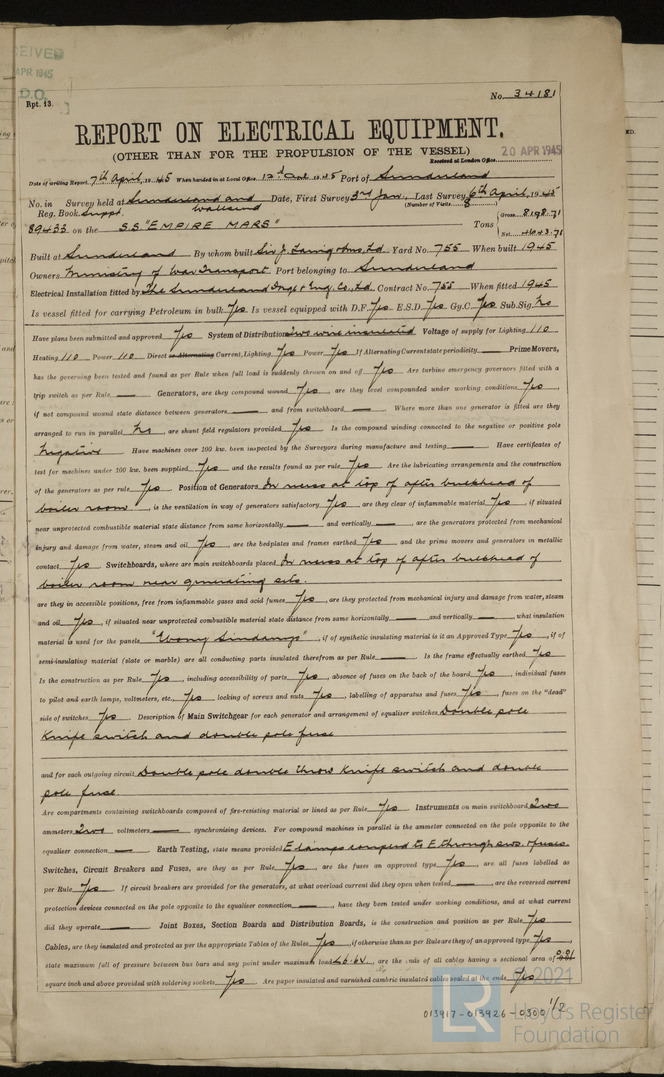 CEIVED
APR 1945
D.O.
Rpt. 13.
No. 34181
REPORT ON ELECTRICAL EQUIPMENT.
(OTHER THAN FOR THE PROPULSION OF THE VESSEL)
20 APR 1945
Received at London Office
Date of writing Report 7th April, 1945 When handed in at Local Office 1945 Port of Sunderland
No. in Survey held at Sunderland and Wallsend Date, First Survey 3rd Jan, Last Survey 6th April, 1945
Reg. Book. Suppt. (Number of Visits 8)
89433 on the S.S. "EMPIRE MARS" Tons Gross 8198.71
Net 4643.71
Built at Sunderland By whom built Sir J. Laing & Sons, Ld Yard No. 755 When built 1945
Owners Ministry of War Transport Port belonging to Sunderland
Electrical Installation fitted by The Sunderland Forge & Eng. Co., Ld. Contract No. 755 When fitted 1945
Is vessel fitted for carrying Petroleum in bulk Yes Is vessel equipped with D.F. Yes E.S.D. Yes Gy.C. Yes Sub.Sig. No
Have plans been submitted and approved Yes System of Distribution two wire insulated Voltage of supply for Lighting 110
Heating 110 Power 110 Direct or Alternating Current, Lighting Yes Power Yes If Alternating Current state periodicity — Prime Movers,
has the governing been tested and found as per Rule when full load is suddenly thrown on and off Yes Are turbine emergency governors fitted with a
trip switch as per Rule — Generators, are they compound wound Yes, are they level compounded under working conditions Yes,
if not compound wound state distance between generators — and from switchboard — Where more than one generator is fitted are they
arranged to run in parallel No, are shunt field regulators provided Yes Is the compound winding connected to the negative or positive pole
Negative Have machines over 100 kw. been inspected by the Surveyors during manufacture and testing — Have certificates of
test for machines under 100 kw. been supplied Yes and the results found as per rule Yes Are the lubricating arrangements and the construction
of the generators as per rule Yes Position of Generators In recess at top of after bulkhead of
boiler room, is the ventilation in way of generators satisfactory Yes are they clear of inflammable material Yes, if situated
near unprotected combustible material state distance from same horizontally — and vertically —, are the generators protected from mechanical
injury and damage from water, steam and oil Yes, are the bedplates and frames earthed Yes and the prime movers and generators in metallic
contact Yes Switchboards, where are main switchboards placed In recess at top of after bulkhead of
boiler room near generating sets.
are they in accessible positions, free from inflammable gases and acid fumes Yes, are they protected from mechanical injury and damage from water, steam
and oil Yes, if situated near unprotected combustible material state distance from same horizontally — and vertically —, what insulation
material is used for the panels "Ebony Sindanyo", if of synthetic insulating material is it an Approved Type Yes, if of
semi-insulating material (slate or marble) are all conducting parts insulated therefrom as per Rule — Is the frame effectually earthed Yes
Is the construction as per Rule Yes, including accessibility of parts Yes, absence of fuses on the back of the board Yes, individual fuses
to pilot and earth lamps, voltmeters, etc., Yes locking of screws and nuts Yes, labelling of apparatus and fuses Yes, fuses on the "dead"
side of switches Yes Description of Main Switchgear for each generator and arrangement of equaliser switches Double pole
Knife switch and double pole fuse
and for each outgoing circuit Double pole double throw Knife switch and double
pole fuse
Are compartments containing switchboards composed of fire-resisting material or lined as per Rule Yes Instruments on main switchboard two
ammeters two voltmeters — synchronising devices. For compound machines in parallel is the ammeter connected on the pole opposite to the
equaliser connection — Earth Testing, state means provided E lamps coupled to E through sws. & fuses.
Switches, Circuit Breakers and Fuses, are they as per Rule Yes, are the fuses an approved type Yes, are all fuses labelled as
per Rule Yes If circuit breakers are provided for the generators, at what overload current did they open when tested —, are the reversed current
protection devices connected on the pole opposite to the equaliser connection —, have they been tested under working conditions, and at what current
did they operate — Joint Boxes, Section Boards and Distribution Boards, is the construction and position as per Rule Yes
Cables, are they insulated and protected as per the appropriate Tables of the Rules Yes, if otherwise than as per Rule are they of an approved type Yes,
state maximum fall of pressure between bus bars and any point under maximum load 6.6v, are the ends of all cables having a sectional area of
square inch and above provided with soldering sockets Yes Are paper insulated and varnished cambric insulated cables sealed at the ends Yes
© 2021
LR Lloyd's Register Foundation
013917-013926-0300 1/2